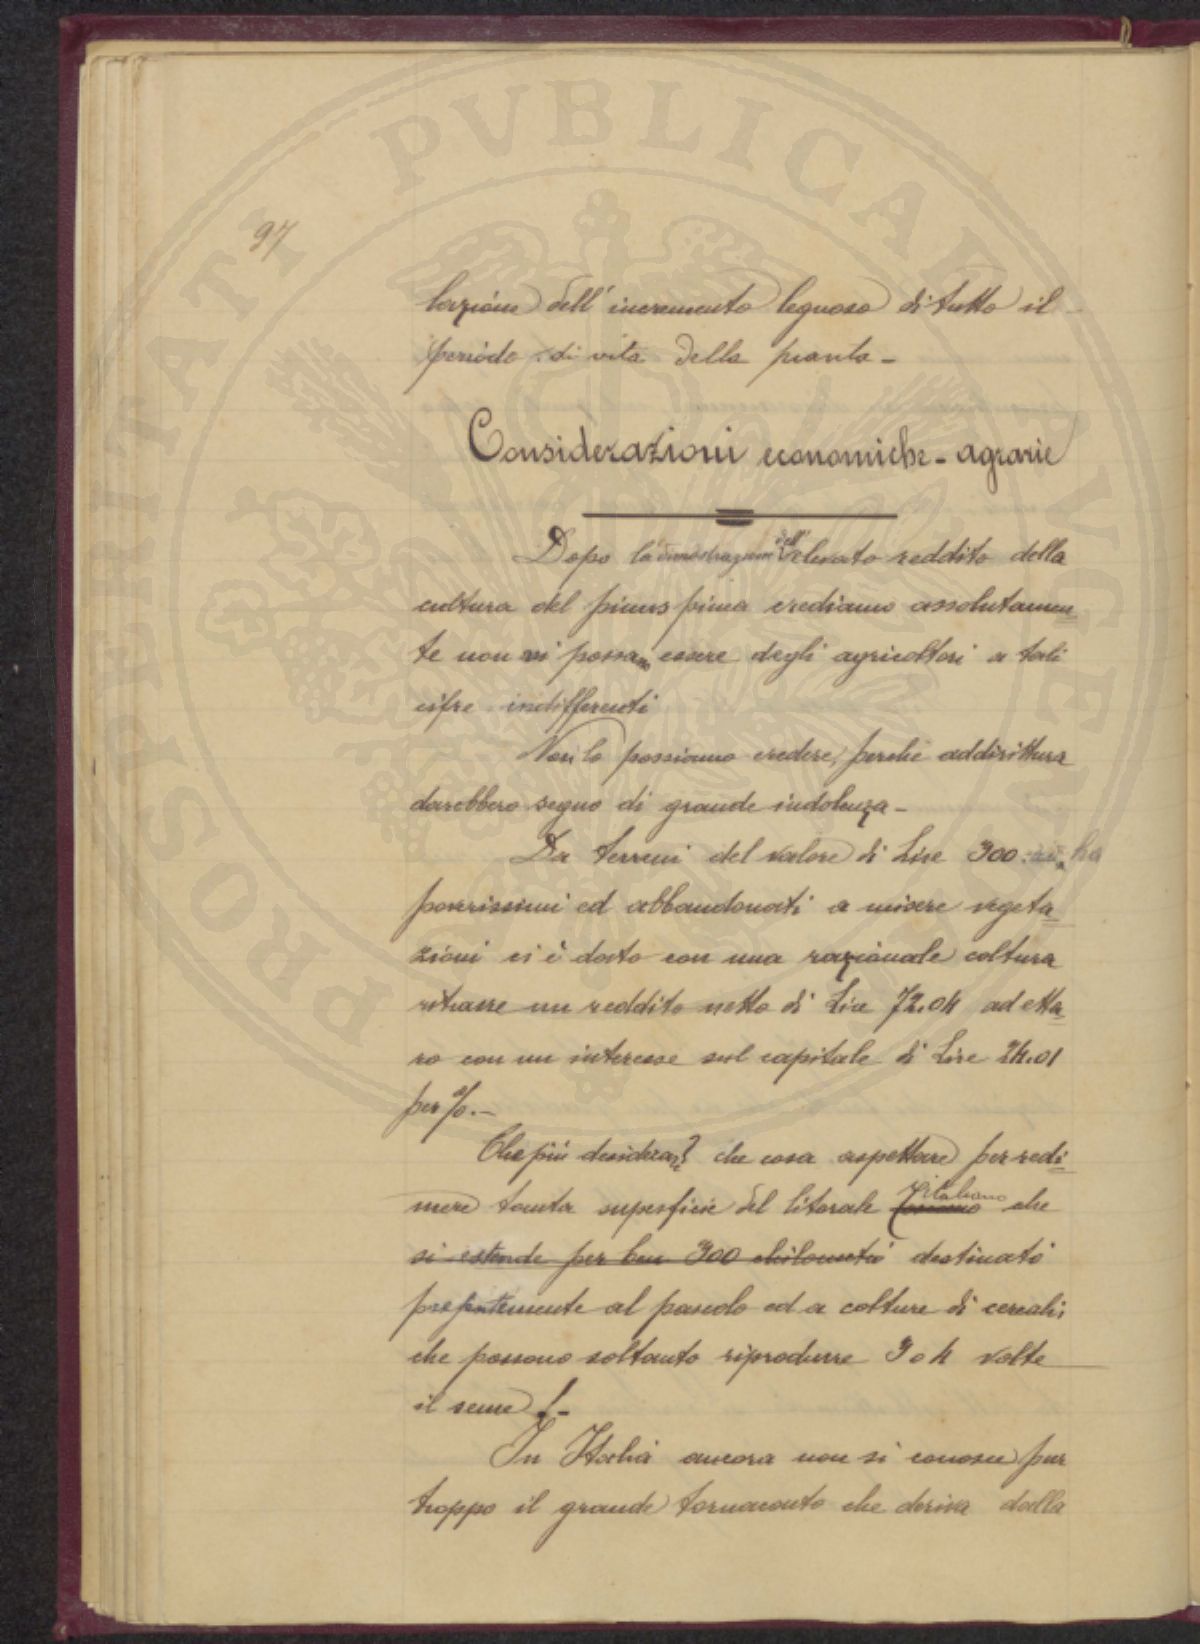 PROSPERITATI PVBLICAE AVGENDAE
97
lazione dell'incremento legnoso di tutto il
periodo di vita della pianta -
Considerazioni economiche - agrarie
Dopo la dimostrazione dell' elevato reddito della
cultura del pinus pinea crediamo assolutamen=
te non vi possano essere degli agricoltori a tali
cifre indifferenti
Non lo possiamo credere, perchè addirittura
darebbero segno di grande indolenza -
Da terreni del valore di Lire 300 ha
poverissimi ed abbandonati a misere vegeta=
zioni ci è dato con una razionale coltura
ritrarre un reddito netto di Lire 72.04 ad etta=
ro con un interesse sul capitale di Lire 24.01
per %. -
Che più desiderare? che cosa aspettare per redi=
mere tanta superficie del litorale toscano italiano che
si estende per ben 300 chilometri destinati
presentemente al pascolo ed a colture di cereali,
che possono soltanto riprodurre 3 o 4 volte
il seme! -
In Italia ancora non si conosce pur
troppo il grande tornaconto che deriva dalla